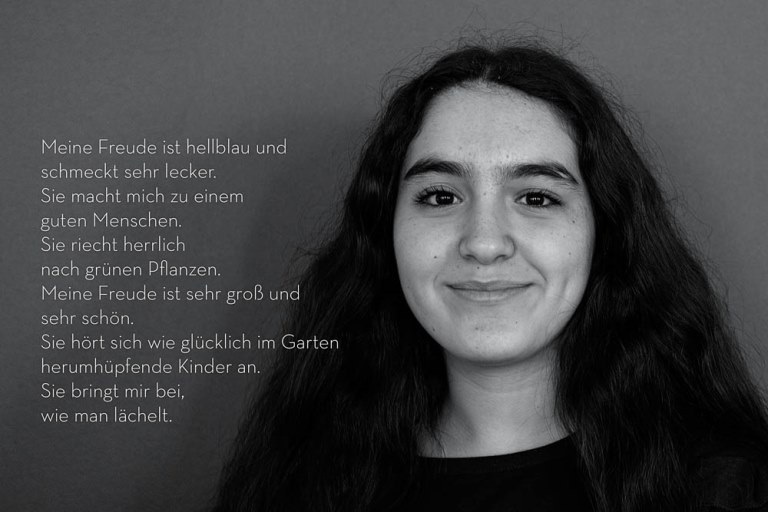 Meine Freude ist hellblau und
schmeckt sehr lecker.
Sie macht mich zu einem
guten Menschen.
Sie riecht herrlich
nach grünen Pflanzen.
Meine Freude ist sehr groß und
sehr schön.
Sie hört sich wie glücklich im Garten
herumhüpfende Kinder an.
Sie bringt mir bei,
wie man lächelt.